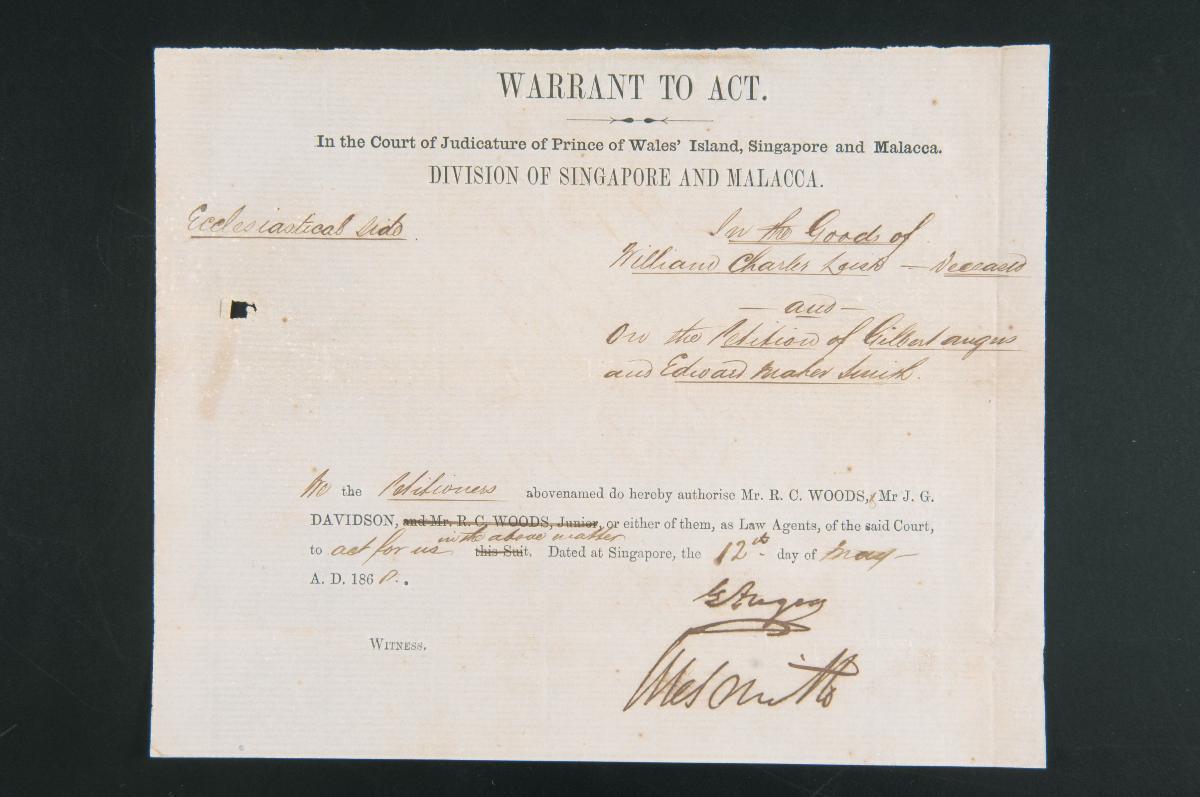 WARRANT TO ACT.
In the Court of Judicature of Prince of Wales' Island, Singapore and Malacca.
DIVISION OF SINGAPORE AND MALACCA.
Ecclesiastical Side
In the Goods of
William Charles Leisk — Deceased
— and —
On the Petition of Gilbert Angus
and Edward Maher Smith.
We the Petitioners abovenamed do hereby authorise Mr. R. C. WOODS, & Mr J. G.
DAVIDSON, and Mr. R. C. WOODS, Junior, or either of them, as Law Agents, of the said Court,
in the above matter
to act for us this Suit. Dated at Singapore, the 12th day of May —
A. D. 1868.
G Angus
WITNESS.